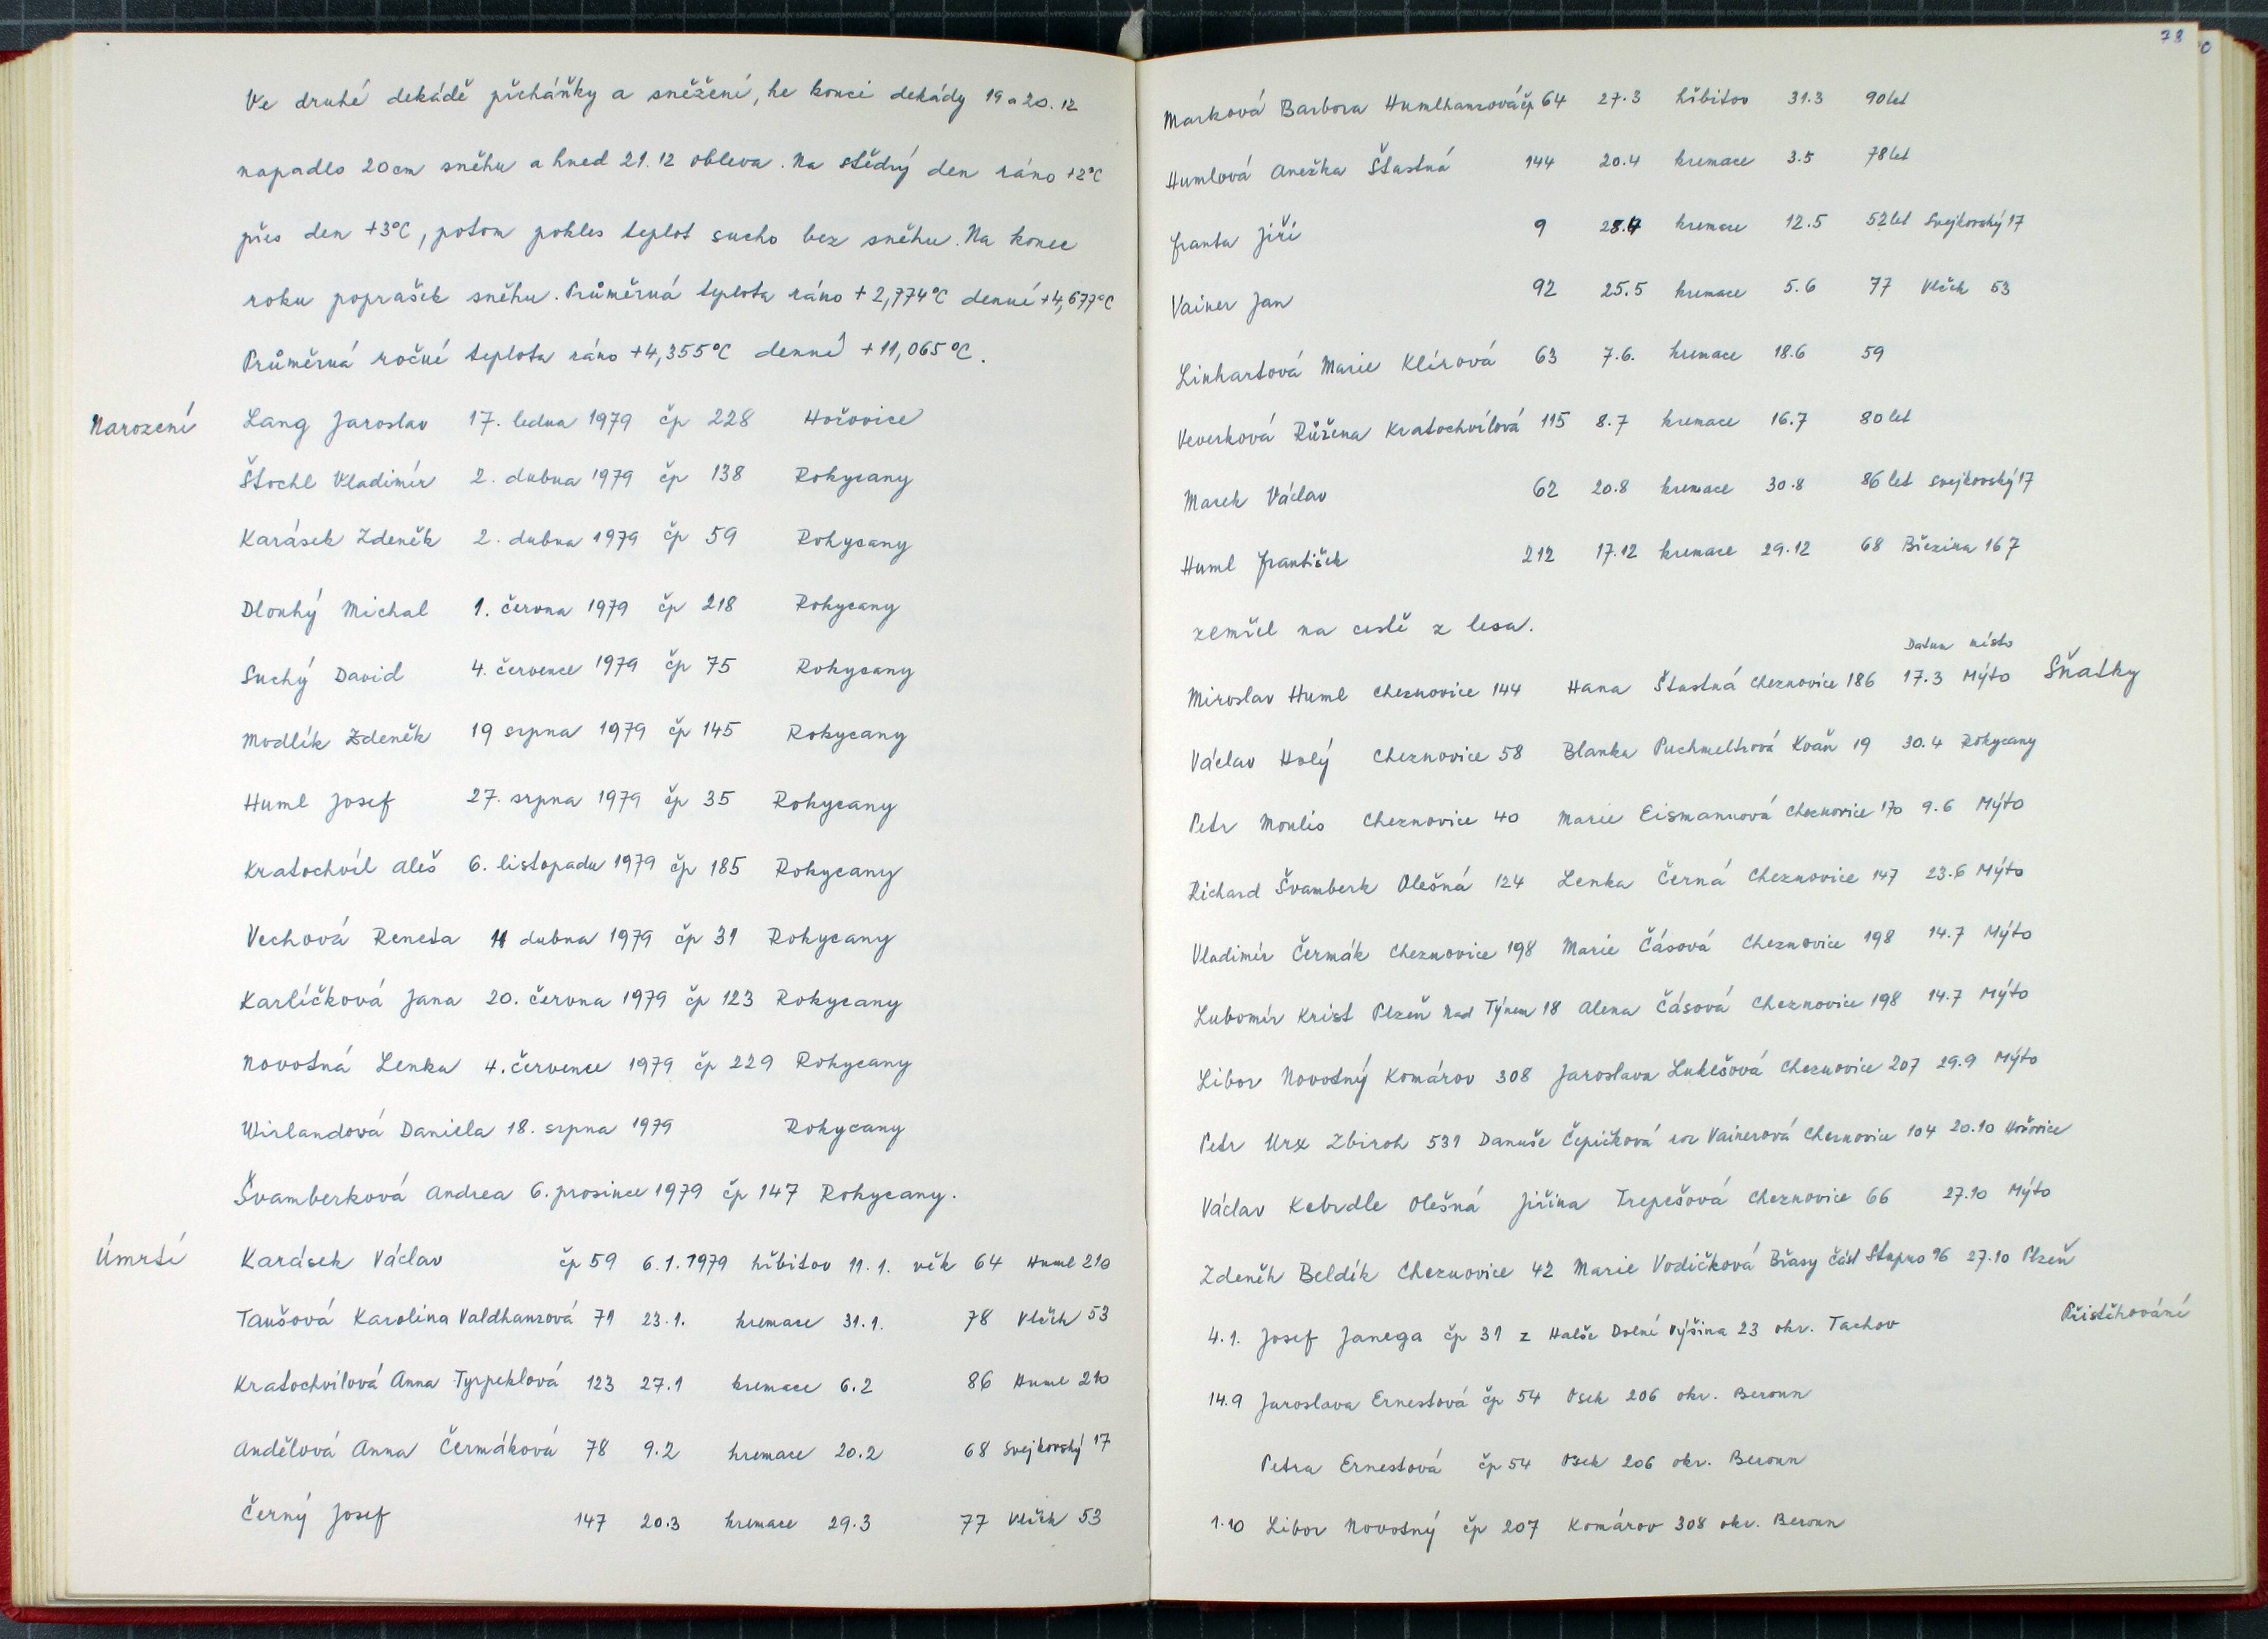 Ve druhé dekádě přeháňky a sněžení, ke konci dekády 19 a 20. 12
napadlo 20 cm sněhu a hned 21. 12 obleva. Na štědrý den ráno +2°C
přes den +3°C, potom pokles teplot sucho bez sněhu. Na konec
roku poprašek sněhu. Průměrná teplota ráno + 2,774°C denní +4,677°C
Průměrná roční teplota ráno +4,355°C denní +11,065°C.
Narození Lang Jaroslav 17. ledna 1979 čp 228 Hořovice
Štochl Vladimír 2. dubna 1979 čp 138 Rokycany
Karásek Zdeněk 2. dubna 1979 čp 59 Rokycany
Dlouhý Michal 1. června 1979 čp 218 Rokycany
Suchý David 4. července 1979 čp 75 Rokycany
Modlík Zdeněk 19 srpna 1979 čp 145 Rokycany
Huml Josef 27. srpna 1979 čp 35 Rokycany
Kratochvíl Aleš 6. listopadu 1979 čp 185 Rokycany
Vechová Reneta 11 dubna 1979 čp 31 Rokycany
Karlíčková Jana 20. června 1979 čp 123 Rokycany
Novotná Lenka 4. července 1979 čp 229 Rokycany
Wirlandová Daniela 18. srpna 1979 Rokycany
Švamberková Andrea 6. prosince 1979 čp 147 Rokycany.
Úmrtí Karásek Václav čp 59 6.1.1979 hřbitov 11.1. věk 64 Huml 210
Taušová Karolina Valdhansová 71 23.1. kremace 31.1. 78 Vlček 53
Kratochvílová Anna Tyrpeklová 123 27.1 kremace 6.2 86 Huml 210
Andělová Anna Čermáková 78 9.2 kremace 20.2 68 Svejkovský 17
Černý Josef 147 20.3 kremace 29.3 77 Vlček 53
78
Marková Barbora Humlhansová čp 64 27.3 hřbitov 31.3 90 let
Humlová Anežka Šťastná 144 20.4 kremace 3.5 78 let
Franta Jiří 9 28.4 kremace 12.5 52 let Svejkovský 17
Vainer Jan 92 25.5 kremace 5.6 77 Vlček 53
Linhartová Marie Klírová 63 7.6. kremace 18.6 59
Veverková Růžena Kratochvílová 115 8.7 kremace 16.7 80 let
Marek Václav 62 20.8 kremace 30.8 86 let Svejkovský 17
Huml František 212 17.12 kremace 29.12 68 Březina 167
zemřel na cestě z lesa.
Datum místo
Miroslav Huml Cheznovice 144 Hana Šťastná Cheznovice 186 17.3 Mýto Sňatky
Václav Holý Cheznovice 58 Blanka Puchmeltrová Kváň 19 30.4 Rokycany
Petr Moulis Cheznovice 40 Marie Eismannová Cheznovice 170 9.6 Mýto
Richard Švamberk Olešná 124 Lenka Černá Cheznovice 147 23.6 Mýto
Vladimír Čermák Cheznovice 198 Marie Čásová Cheznovice 198 14.7 Mýto
Lubomír Krist Plzeň Nad Týnem 18 Alena Čásová Cheznovice 198 14.7 Mýto
Libor Novotný Komárov 308 Jaroslava Lukešová Cheznovice 207 29.9 Mýto
Petr Urx Zbiroh 531 Danuše Čepičková roz Vainerová Cheznovice 104 20.10 Hořovice
Václav Kebrdle Olešná Jiřina Trepešová Cheznovice 66 27.10 Mýto
Zdeněk Beldík Cheznovice 42 Marie Vodičková Břasy část Stupno 96 27.10 Plzeň
Přistěhování
4.1. Josef Janega čp 31 z Halše Dolní Výšina 23 okr. Tachov
14.9 Jaroslava Ernestová čp 54 Osek 206 okr. Beroun
Petra Ernestová čp 54 Osek 206 okr. Beroun
1.10 Libor Novotný čp 207 Komárov 308 okr. Beroun